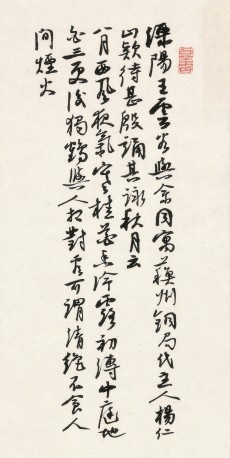 溧陽王雲谷與余同寓蘇州銅局代主人楊仁
山款待甚殷誦其詠秋月云
八月西風夜氣寒桂花香冷露初漙中庭地
白三更後獨鶴與人相對看可謂清絕不食人
間煙火